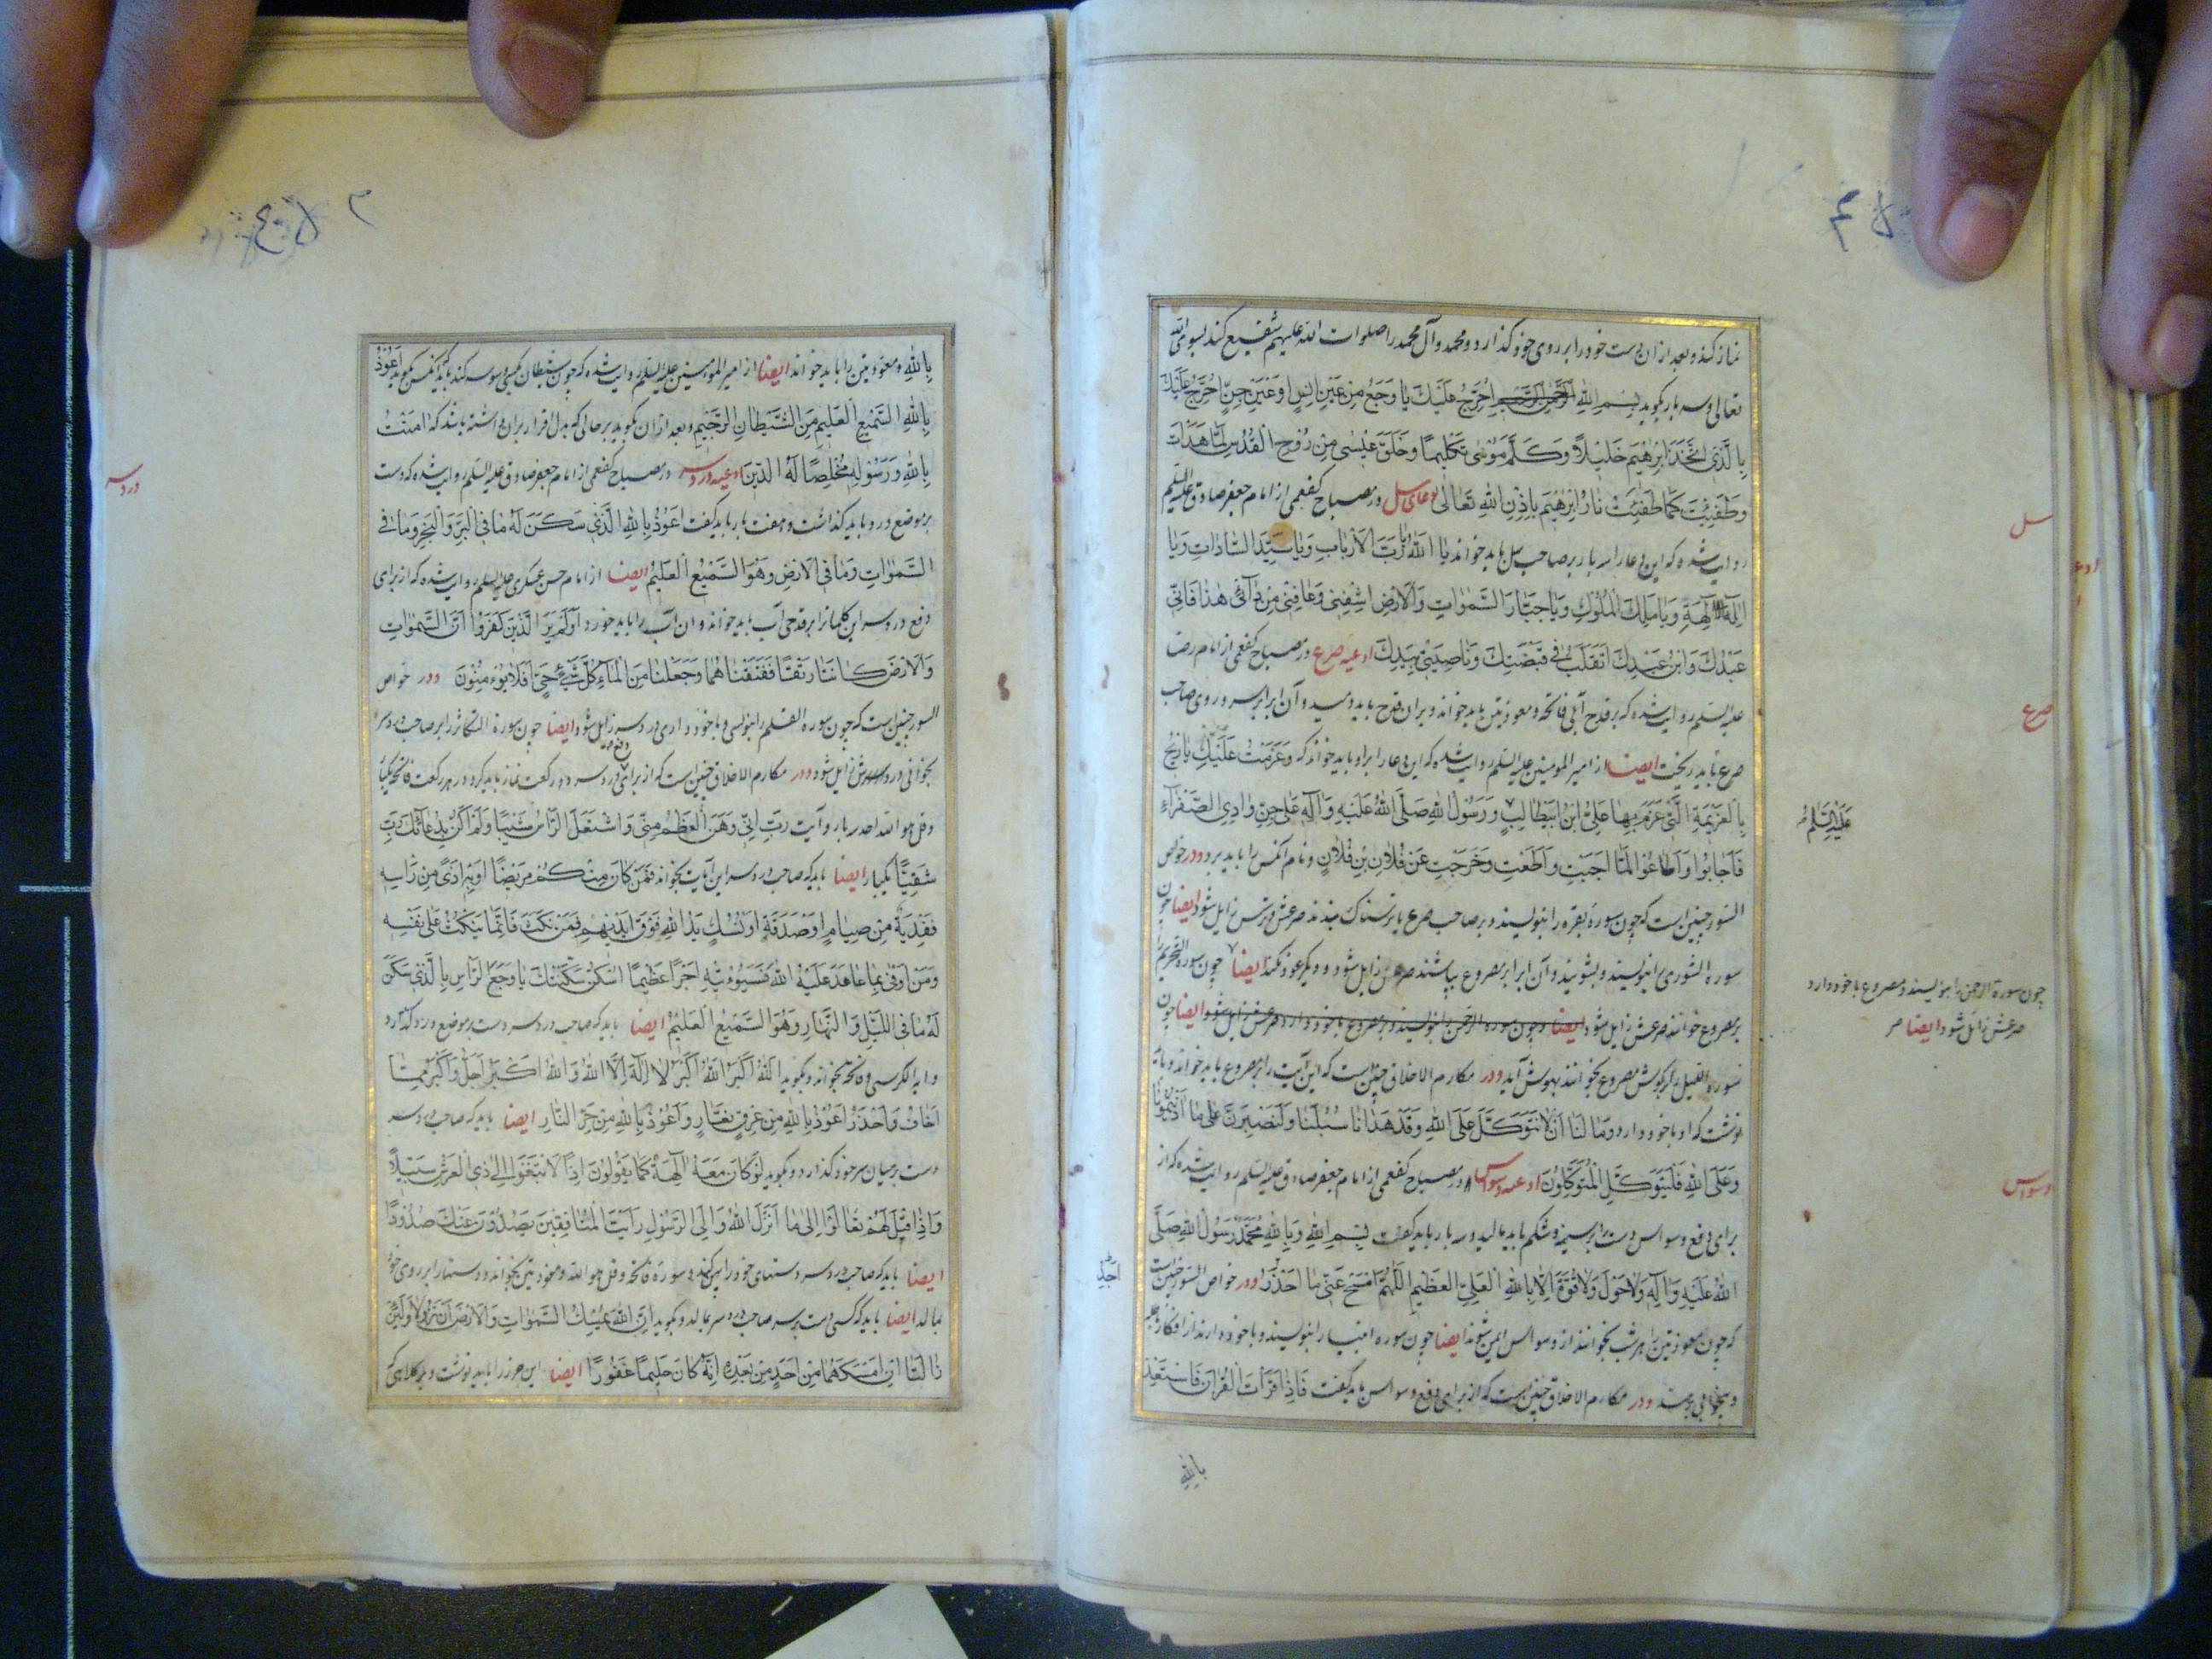 نماز کند و بعد از ان دست خود را بر روی خود گذارد و محمد و آل محمد را صلوات الله علیهم شفیع کند بسوی الله
تعالی و سه بار بگوید بِسْمِ اللهِ الرَّحْمٰنِ الرَّحِیمِ اُحَرِّجُ عَلَیْكَ یا وَجَعُ مِنْ عَیْنِ اِنْسٍ اَوْ عَیْنِ جِنٍّ اُحَرِّجُ عَلَیْكَ
بِالَّذِی اتَّخَذَ اِبْرٰهِیمَ خَلِیلاً وَکَلَّمَ مُوسٰی تَکْلِیمًا وَخَلَقَ عِیسٰی مِنْ رُوحِ الْقُدُسِ لَمَّا هَدَاْتَ
وَطَفِئْتَ کَمَا طَفِئَتْ نَارُ اِبْرٰهِیمَ بِاِذْنِ اللهِ تَعَالٰی دعای سل در مصباح کفعمی از امام جعفر صادق علیه السلم
روایت شده که این دعا را سه بار بر صاحب سل باید خواند یَا اَللهُ یَا رَبَّ الْاَرْبَابِ وَیَا سَیِّدَ السَّادَاتِ وَیَا
اِلٰهَ الْاٰلِهَةِ وَیَا مَلِكَ الْمُلُوكِ وَیَا جَبَّارَ السَّمٰوَاتِ وَالْاَرْضِ اشْفِنِی وَعَافِنِی مِنْ دَائِی هٰذَا فَاِنِّی
عَبْدُكَ وَابْنُ عَبْدِكَ اَتَقَلَّبُ فِی قَبْضَتِكَ وَنَاصِیَتِی بِیَدِكَ ادعیه صرع در مصباح کفعمی از امام رضا
علیه السلم روایت شده که بر قدح آبی فاتحه و معوذتین باید خواند و بر ان قدح باید دمید و آن را بر سر و روی صاحب
صرع باید ریخت ایضا از امیر المومنین علیه السلم روایت شده که این دعا را بر او باید خواند که عَزَمْتُ عَلَیْكِ یَا رِیحُ
بِالْعَزِیمَةِ الَّتِی عَزَمَ بِهَا عَلِیُّ ابْنُ اَبِیطَالِبٍ وَرَسُولُ اللهِ صَلَّی اللهُ عَلَیْهِ وَآلِهِ عَلٰی جِنِّ وَادِی الصَّفْرَآءِ
فَاَجَابُوا وَاَطَاعُوا لَمَّا اَجَبْتِ وَاَطَعْتِ وَخَرَجْتِ عَنْ فُلَانِ بْنِ فُلَانٍ و نام انکس را باید برد و در خواص
السور چنین است که چون سوره بقره را بنویسند و بر صاحب صرع یا ترسناک بندند صرعش و ترس زایل شود ایضا چون
سوره الشوری را بنویسند و بشویند و آن را بر مصروع بپاشند صرعش زایل شود و دیگر عود نکند ایضا چون سوره التحریم را
بر مصروع خوانند صرعش زایل شود ایضا و چون سوره الرحمن را بنویسند و بر مصروع با خود دارد صرعش زایل شود ایضا چون
سوره اللیل در گوش مصروع بخوانند بهوش آید و در مکارم الاخلاق چنین است که این آیت را بر مصروع باید خواند و باید
نوشت که او با خود دارد وَمَا لَنَا اَنْ لَا نَتَوَکَّلَ عَلَی اللهِ وَقَدْ هَدَانَا سُبُلَنَا وَلَنَصْبِرَنَّ عَلٰی مَا اٰذَیْتُمُونَا
وَعَلَی اللهِ فَلْیَتَوَکَّلِ الْمُتَوَکِّلُونَ ادعیه وسواس در مصباح کفعمی از امام جعفر صادق علیه السلم روایت شده که از
برای دفع وسواس دست را بر سینه و شکم باید مالید و سه بار باید گفت بِسْمِ اللهِ وَبِاللهِ مُحَمَّدٌ رَسُولُ اللهِ صَلَّی
اللهُ عَلَیْهِ وَآلِهِ وَلَا حَوْلَ وَلَا قُوَّةَ اِلَّا بِاللهِ الْعَلِیِّ الْعَظِیمِ اَللّٰهُمَّ امْسَحْ عَنِّی مَا اَحْذَرُ و در خواص السور چنین است
که چون معوذتین را هر شب بخوانند از وسواس ایمن شوند ایضا چون سوره انبیا را بنویسند و با خود دارند از افکار
و بیخوابی برهند و در مکارم الاخلاق چنین است که از برای دفع وسواس باید گفت فَاِذَا قَرَأْتَ الْقُرْآنَ فَاسْتَعِذْ
بِاللهِ
سل
صرع
عَلَیْهِ السَّلَمُ
چون سورة الرحمن را بنویسند و مصروع با خود دارد
صرعش زائل شود ایضا
وسواس
بِاللهِ و معوذتین را باید خواند ایضا از امیر المومنین علیه السلم روایت شده که چون شیطان کسی را وسوسه کند باید که انکس بگوید اَعُوذُ
بِاللهِ السَّمِیعِ الْعَلِیمِ مِنَ الشَّیْطَانِ الرَّجِیمِ و بعد از ان بگوید بر حالی که بدل اقرار بران داشته باشد که اٰمَنْتُ
بِاللهِ وَرَسُولِهِ مُخْلِصًا لَهُ الدِّینَ ادعیه درد سر در مصباح کفعمی از امام جعفر صادق علیه السلم روایت شده که دست
بر موضع درد باید گذاشت و هفت بار باید گفت اَعُوذُ بِاللهِ الَّذِی سَکَنَ لَهُ مَا فِی الْبَرِّ وَالْبَحْرِ وَمَا فِی
السَّمٰوَاتِ وَمَا فِی الْاَرْضِ وَهُوَ السَّمِیعُ الْعَلِیمُ ایضا از امام حسن عسکری علیه السلم روایت شده که از برای
دفع درد سر این کلمات را بر قدحی آب باید خواند و ان آب را باید خورد اَوَلَمْ یَرَ الَّذِینَ کَفَرُوا اَنَّ السَّمٰوَاتِ
وَالْاَرْضَ کَانَتَا رَتْقًا فَفَتَقْنَاهُمَا وَجَعَلْنَا مِنَ الْمَاءِ کُلَّ شَیْءٍ حَیٍّ اَفَلَا یُؤْمِنُونَ و در خواص
السور چنین است که چون سوره القلم را بنویسی و با خود داری درد سر زایل شود ایضا چون سورة التکاثر را بر صاحب درد سر
بخوانی درد سرش زایل شود و در مکارم الاخلاق چنین است که از برای دفع درد سر دو رکعت نماز باید کرد و در هر رکعت فاتحه یکبار
و قل هو الله احد سه بار و آیت رَبِّ اِنِّی وَهَنَ الْعَظْمُ مِنِّی وَاشْتَعَلَ الرَّأْسُ شَیْبًا وَلَمْ اَکُنْ بِدُعَائِكَ رَبِّ
شَقِیًّا یکبار ایضا باید که صاحب درد سر این آیات بخواند فَمَنْ کَانَ مِنْکُمْ مَرِیضًا اَوْ بِهِ اَذًی مِنْ رَأْسِهِ
فَفِدْیَةٌ مِنْ صِیَامٍ اَوْ صَدَقَةٍ اَوْ نُسُكٍ یَدُ اللهِ فَوْقَ اَیْدِیهِمْ فَمَنْ نَکَثَ فَاِنَّمَا یَنْکُثُ عَلٰی نَفْسِهِ
وَمَنْ اَوْفٰی بِمَا عَاهَدَ عَلَیْهُ اللهَ فَسَیُؤْتِیهِ اَجْرًا عَظِیمًا اُسْکُنْ سَکَّنْتُكَ یَا وَجَعَ الرَّأْسِ بِالَّذِی سَکَنَ
لَهُ مَا فِی اللَّیْلِ وَالنَّهَارِ وَهُوَ السَّمِیعُ الْعَلِیمُ ایضا باید که صاحب درد سر دست بر موضع درد گذارد
و ایة الکرسی و فاتحه بخواند و بگوید اَللهُ اَکْبَرُ اَللهُ اَکْبَرُ لَا اِلٰهَ اِلَّا اللهُ وَاللهُ اَکْبَرُ اَجَلُّ وَاَکْبَرُ مِمَّا
اَخَافُ وَاَحْذَرُ اَعُوذُ بِاللهِ مِنْ عِرْقٍ نَعَّارٍ وَاَعُوذُ بِاللهِ مِنْ حَرِّ النَّارِ ایضا باید که صاحب درد سر
دست بر میان سر خود گذارد و بگوید لَوْ کَانَ مَعَهُ اٰلِهَةٌ کَمَا یَقُولُونَ اِذًا لَابْتَغَوْا اِلٰی ذِی الْعَرْشِ سَبِیلًا
وَاِذَا قِیلَ لَهُمْ تَعَالَوْا اِلٰی مَا اَنْزَلَ اللهُ وَاِلَی الرَّسُولِ رَاَیْتَ الْمُنَافِقِینَ یَصُدُّونَ عَنْكَ صُدُودًا
ایضا باید که صاحب درد سر دستهای خود را پهن کند و سوره فاتحه و قل هو الله و معوذتین بخواند و دستها را بر روی خود
بمالد ایضا باید که کسی دست بر سر صاحب درد سر بمالد و بگوید اِنَّ اللهَ یُمْسِكُ السَّمٰوَاتِ وَالْاَرْضَ اَنْ تَزُولَا وَلَئِنْ
زَالَتَا اِنْ اَمْسَکَهُمَا مِنْ اَحَدٍ مِنْ بَعْدِهِ اِنَّهُ کَانَ حَلِیمًا غَفُورًا ایضا این حرز را باید نوشت و در کلاهی که
درد سر